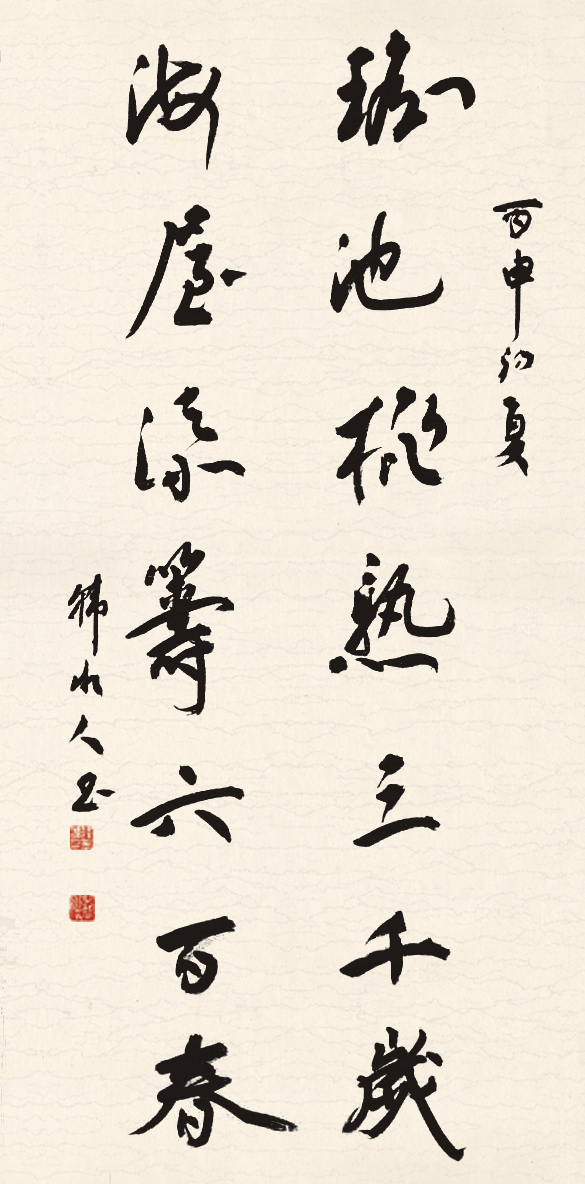 丙申初夏
瑶池桃熟三千歲
海屋添籌六百春
人书